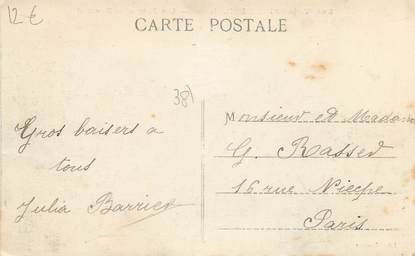 12€
CARTE POSTALE
38)
Gros baisers a
tous
Julia
Monsieur et Madame
G. Rasset
16 rue Niepce
Paris